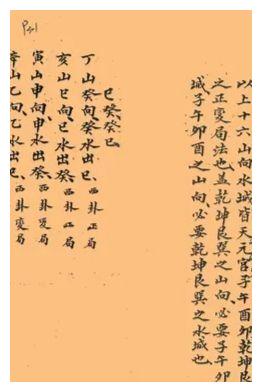 P41
以上十六山向水城皆天元宫子午酉卯乾坤艮
之正變局法也蓋乾坤艮巽之山向必要子午卯
城子午卯酉之山向必要乾坤艮巽之水城也
巳癸癸巳
丁山癸向癸水出巳 西卦正局
亥山巳向巳水出癸 西卦正局
寅山申向申水出癸 西卦變局
辛山乙向乙水出巳 西卦變局